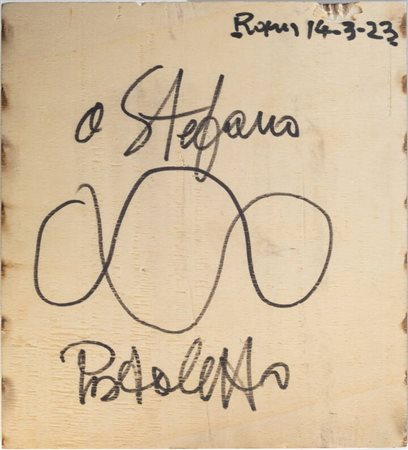 Roma 14-3-23
a Stefano
Pistoletto